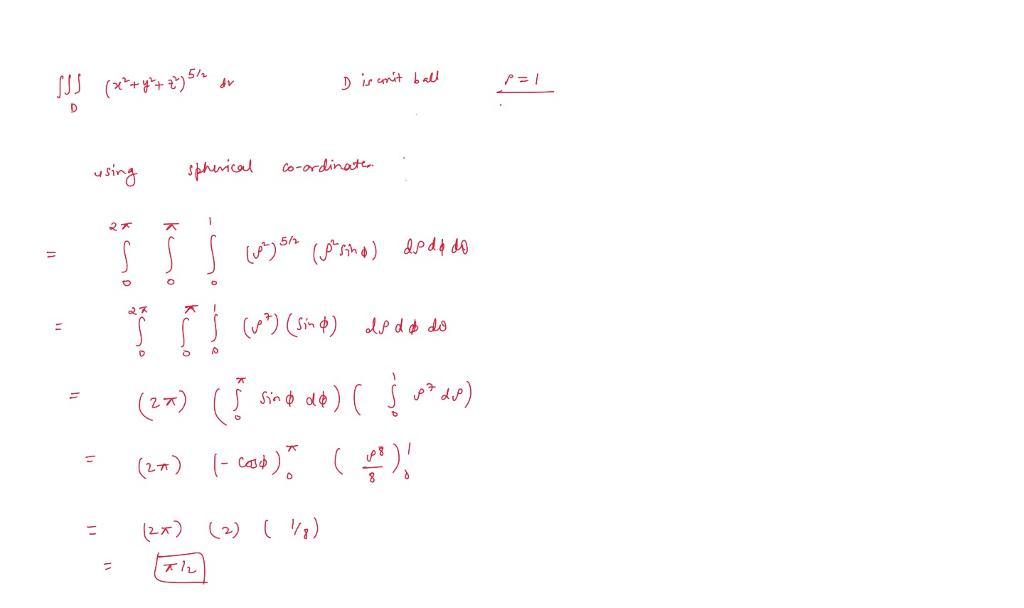 ∭_D (x²+y²+z²)^{5/2} dv D is unit ball ρ=1
using spherical co-ordinates
= ∫_0^{2π} ∫_0^π ∫_0^1 (ρ²)^{5/2} (ρ² sin ϕ) dρ dϕ dθ
= ∫_0^{2π} ∫_0^π ∫_0^1 (ρ⁷) (sin ϕ) dρ dϕ dθ
= (2π) (∫_0^π sin ϕ dϕ) (∫_0^1 ρ⁷ dρ)
= (2π) (-cosϕ)_0^π (ρ⁸/8)_0^1
= (2π) (2) (1/8)
= π/2